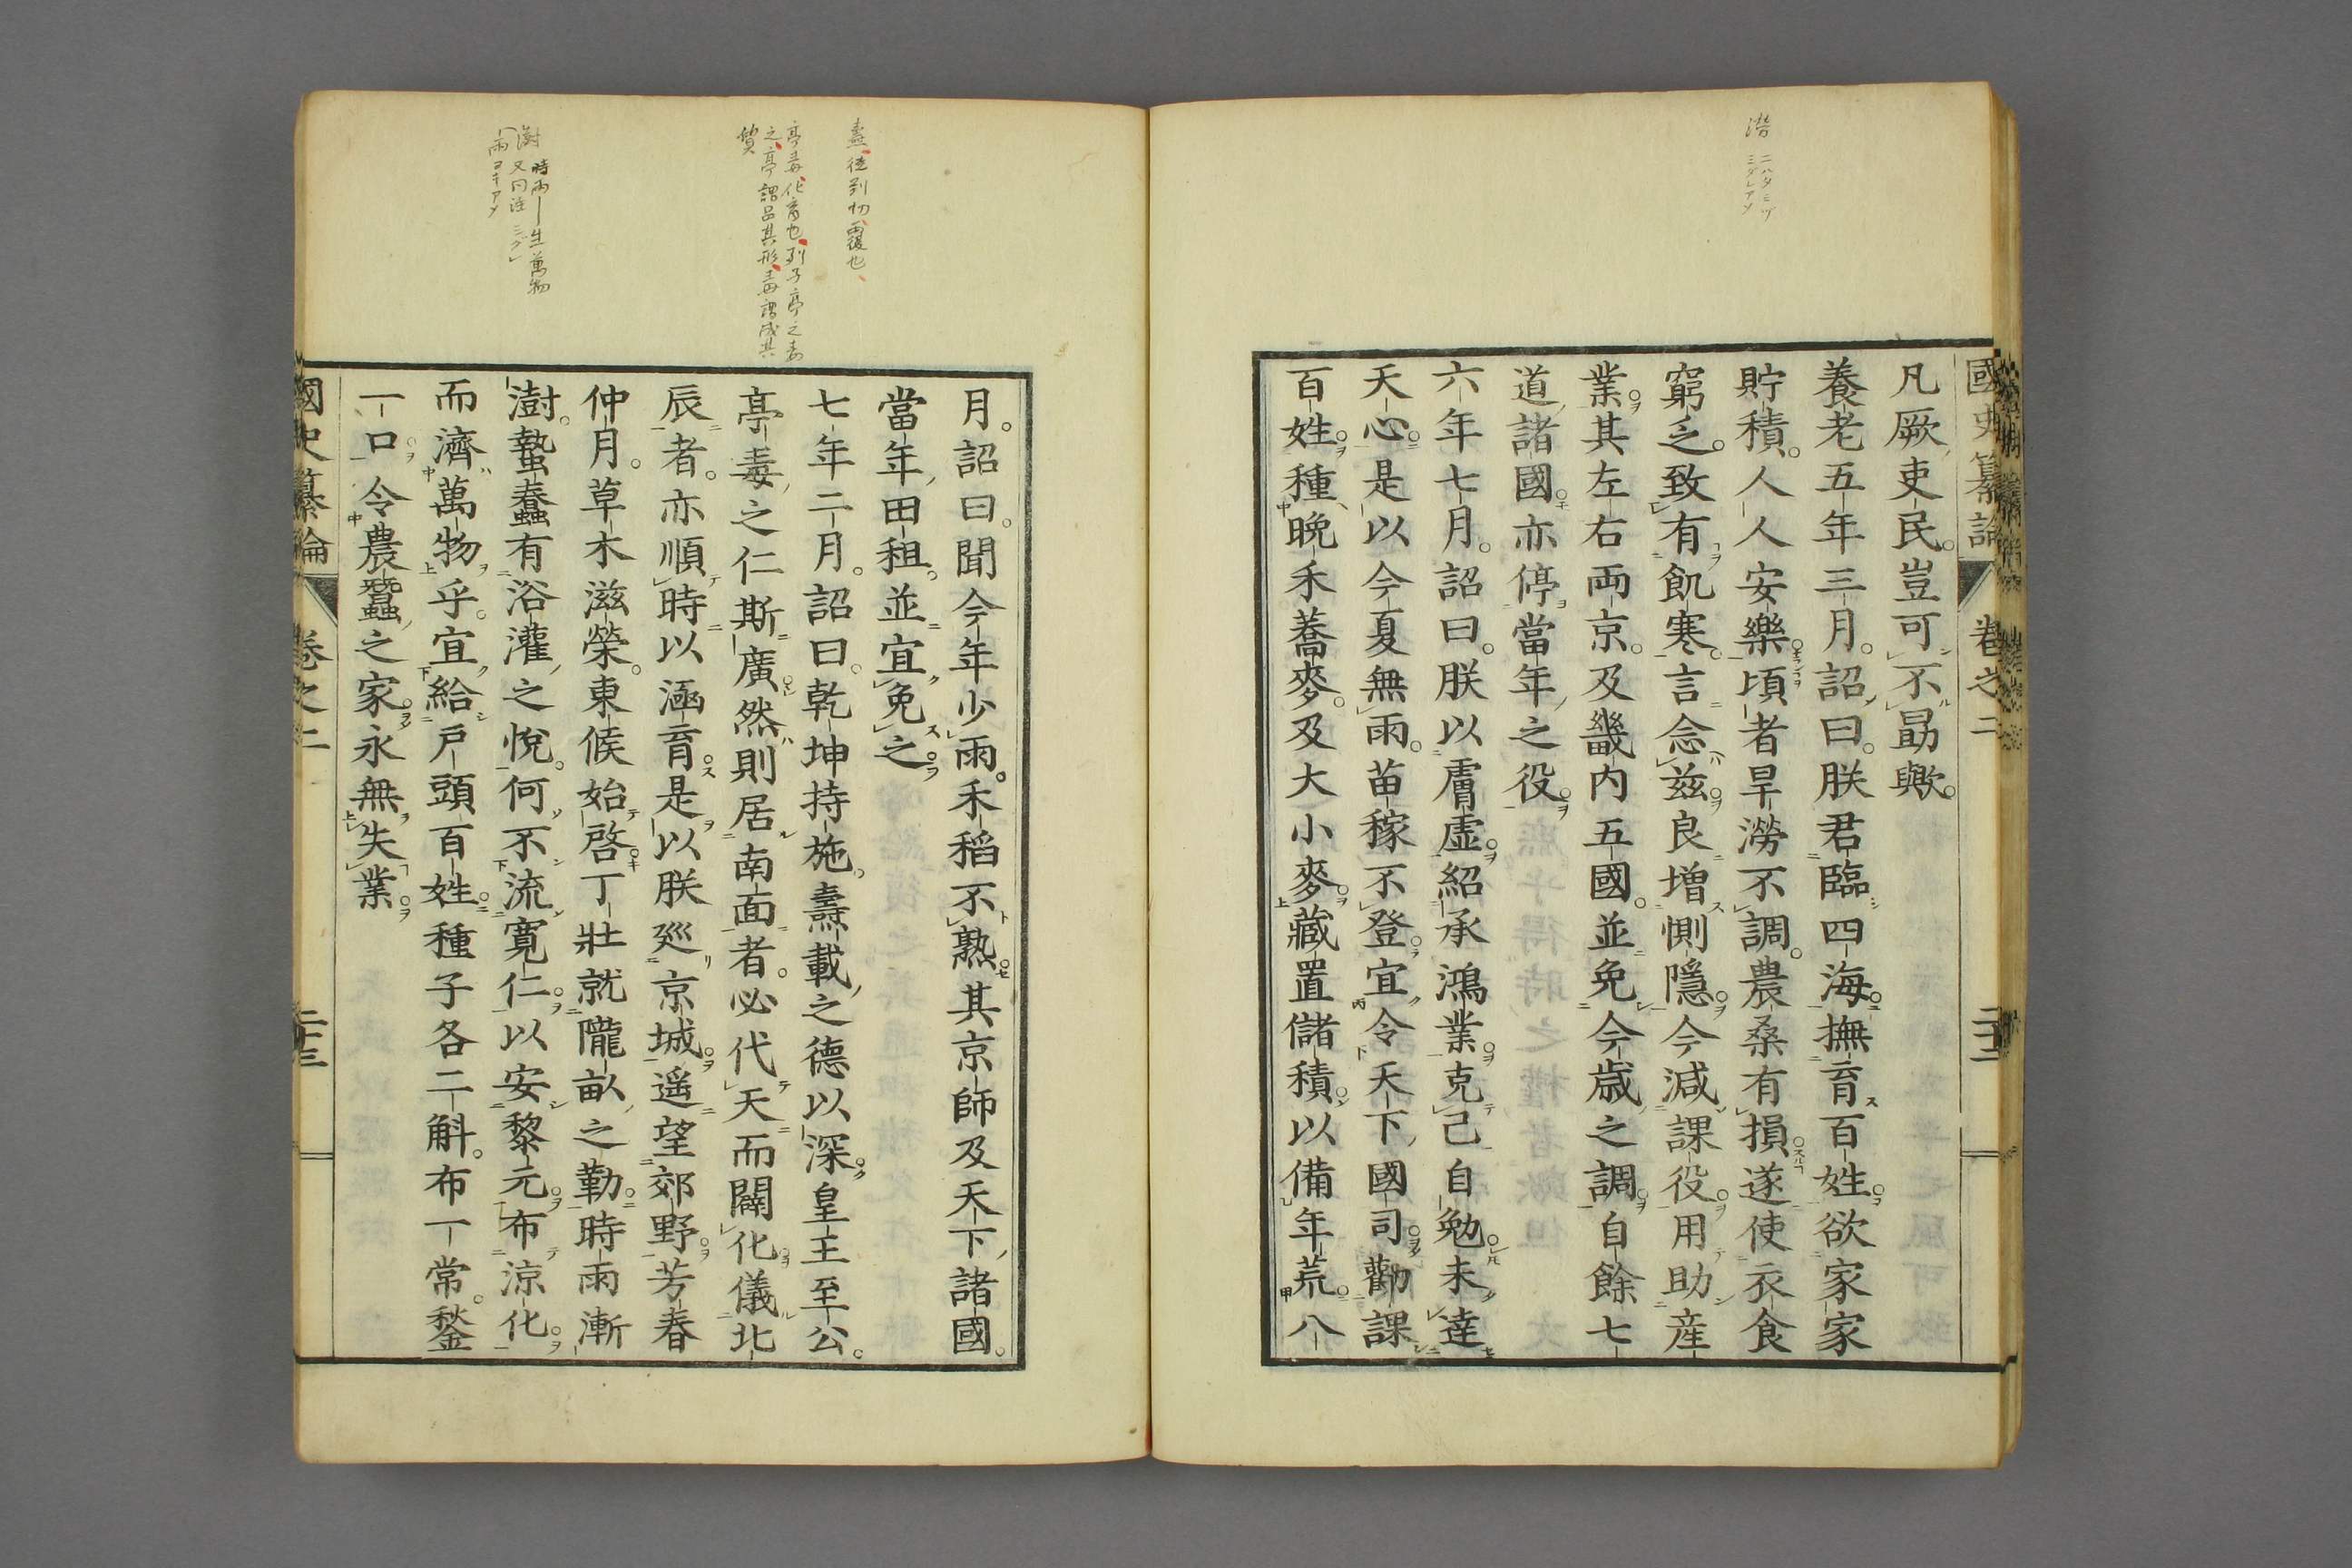 國史纂論
卷之二
二十二
凡厥吏民。豈可不勗歟。
養老五年三月。詔曰。朕君臨四海。撫育百姓。欲家家
貯積。人人安樂。頃者旱澇不調。農桑有損。遂使衣食
窮乏。致有飢寒。言念玆。良增惻隱。今減課役。用助産
業。其左右両京。及畿内五國。並免今歲之調。自餘七
道諸國。亦停當年之役。
六年七月。詔曰。朕以庸虛。紹承鴻業。克己自勉。未達
天心。是以今夏無雨。苗稼不登。宜令天下國司。勸課
百姓。種晩禾蕎麥。及大小麥。藏置儲積。以備年荒。八
月。詔曰。聞今年少雨。禾稻不熟。其京師及天下諸國。
當年田租。並宜免之。
七年二月。詔曰。乾坤持施。燾載之德以深。皇王至公。
亭毒之仁斯廣。然則居南面者。必代天而闢化。儀北
辰者。亦順時以涵育。是以朕巡京城。遥望郊野。芳春
仲月。草木滋榮。東候始啓。丁壯就隴畝之勤。時雨漸
澍。蟄蠢有浴灌之悅。何不流寛仁。以安黎元。布涼化。
而濟萬物乎。宜給戸頭百姓。種子各二斛。布一常。鍫
一口。令農蠶之家。永無失業。
國史纂論
卷之二
二十三